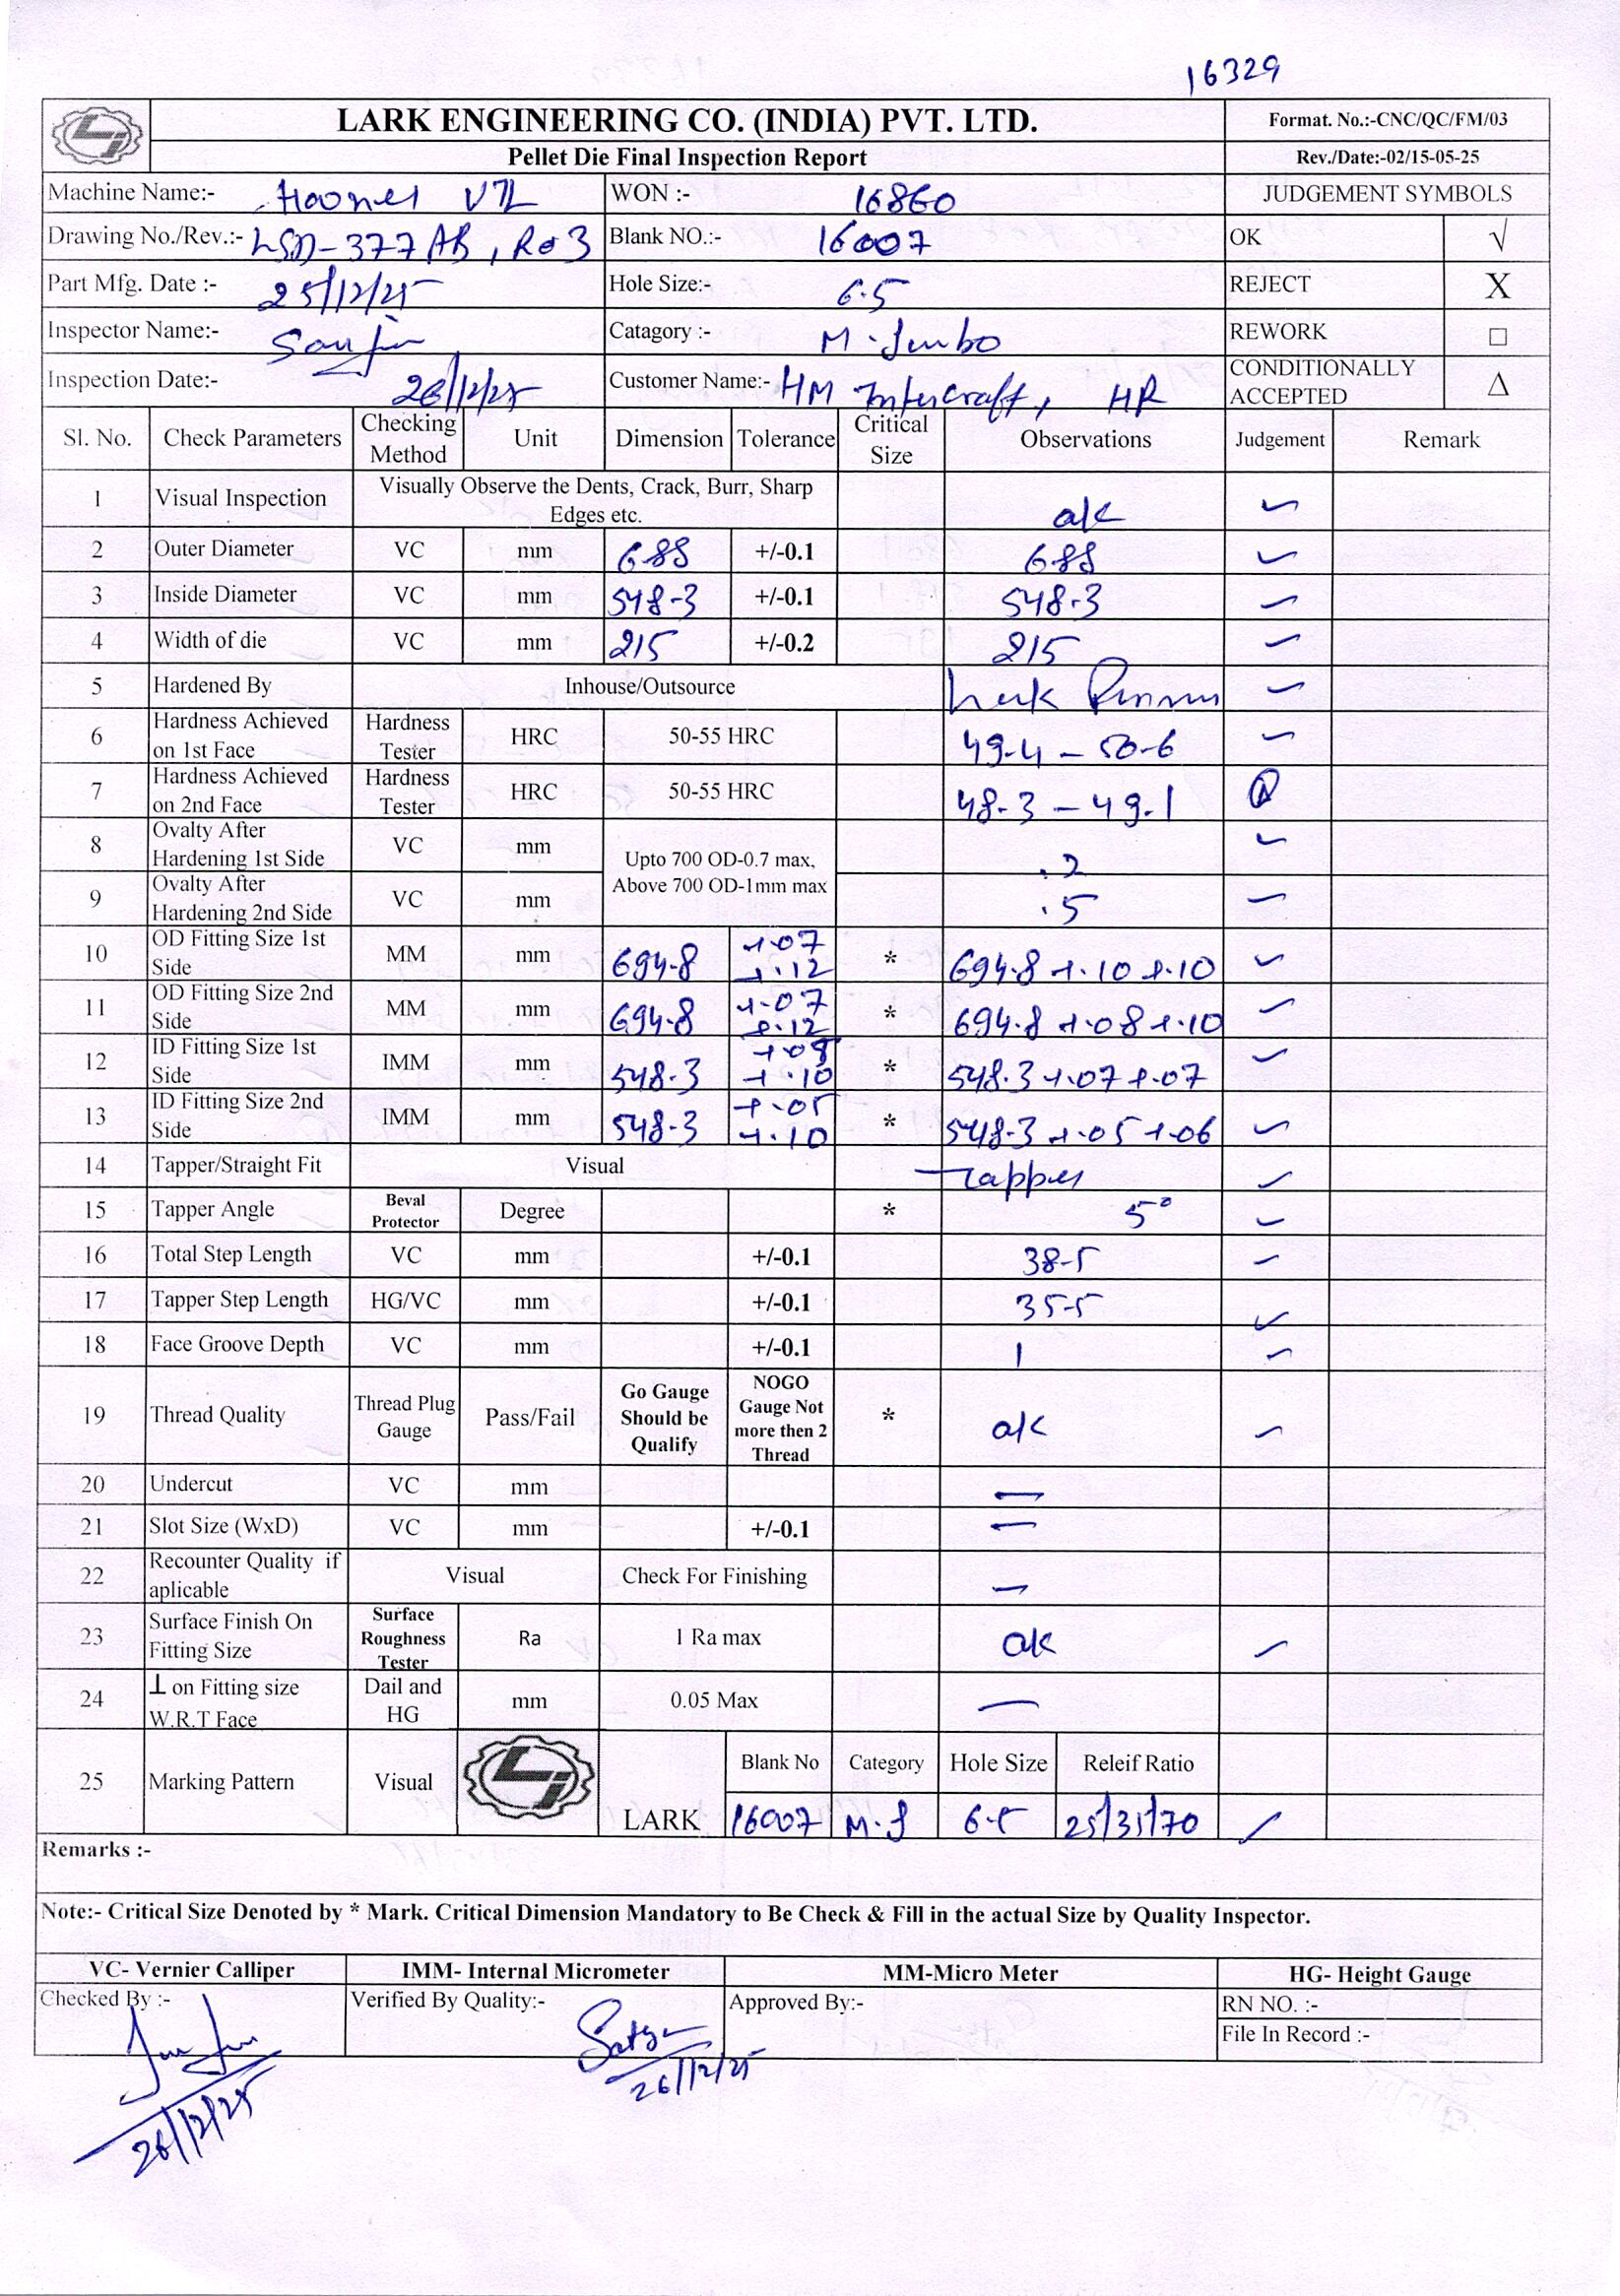 16329
LARK ENGINEERING CO. (INDIA) PVT. LTD. Format. No.:-CNC/QC/FM/03
Pellet Die Final Inspection Report Rev./Date:-02/15-05-25
Machine Name:- VTL WON :- 16860 JUDGEMENT SYMBOLS
Drawing No./Rev.:- LSD-377AB, R03 Blank NO.:- 16007 OK √
Part Mfg. Date :- 25/12/25 Hole Size:- 6.5 REJECT X
Inspector Name:- Catagory :- M. Jumbo REWORK □
Inspection Date:- 26/12/25 Customer Name:- HM Intercraft, HR CONDITIONALLY ACCEPTED Δ
Sl. No. Check Parameters Checking Method Unit Dimension Tolerance Critical Size Observations Judgement Remark
1 Visual Inspection Visually Observe the Dents, Crack, Burr, Sharp Edges etc. ok ✓
2 Outer Diameter VC mm 688 +/-0.1 688 ✓
3 Inside Diameter VC mm 548.3 +/-0.1 548.3 ✓
4 Width of die VC mm 215 +/-0.2 215 ✓
5 Hardened By Inhouse/Outsource Lark ✓
6 Hardness Achieved on 1st Face Hardness Tester HRC 50-55 HRC 49.4 - 50.6 ✓
7 Hardness Achieved on 2nd Face Hardness Tester HRC 50-55 HRC 48.3 - 49.1
8 Ovalty After Hardening 1st Side VC mm Upto 700 OD-0.7 max, Above 700 OD-1mm max .2 ✓
9 Ovalty After Hardening 2nd Side VC mm .5 ✓
10 OD Fitting Size 1st Side MM mm 694.8 +.07 +.12 * 694.8 +.10 +.10 ✓
11 OD Fitting Size 2nd Side MM mm 694.8 +.07 +.12 * 694.8 +.08 +.10 ✓
12 ID Fitting Size 1st Side IMM mm 548.3 +.10 * 548.3 +.07 +.07 ✓
13 ID Fitting Size 2nd Side IMM mm 548.3 +.05 +.10 * 548.3 +.05 +.06 ✓
14 Tapper/Straight Fit Visual Tapper ✓
15 Tapper Angle Beval Protector Degree * 5° ✓
16 Total Step Length VC mm +/-0.1 38.5 ✓
17 Tapper Step Length HG/VC mm +/-0.1 35.5 ✓
18 Face Groove Depth VC mm +/-0.1 1 ✓
19 Thread Quality Thread Plug Gauge Pass/Fail Go Gauge Should be Qualify NOGO Gauge Not more then 2 Thread * ok ✓
20 Undercut VC mm —
21 Slot Size (WxD) VC mm +/-0.1 —
22 Recounter Quality if aplicable Visual Check For Finishing —
23 Surface Finish On Fitting Size Surface Roughness Tester Ra 1 Ra max ok ✓
24 ⊥ on Fitting size W.R.T Face Dail and HG mm 0.05 Max —
25 Marking Pattern Visual LARK Blank No Category Hole Size Releif Ratio
16007 M.J 6.5 25/31/70 ✓
Remarks :-
Note:- Critical Size Denoted by * Mark. Critical Dimension Mandatory to Be Check & Fill in the actual Size by Quality Inspector.
VC- Vernier Calliper IMM- Internal Micrometer MM-Micro Meter HG- Height Gauge
Checked By :- Verified By Quality:- Approved By:- RN NO. :-
File In Record :-
26/12/25
26/12/25